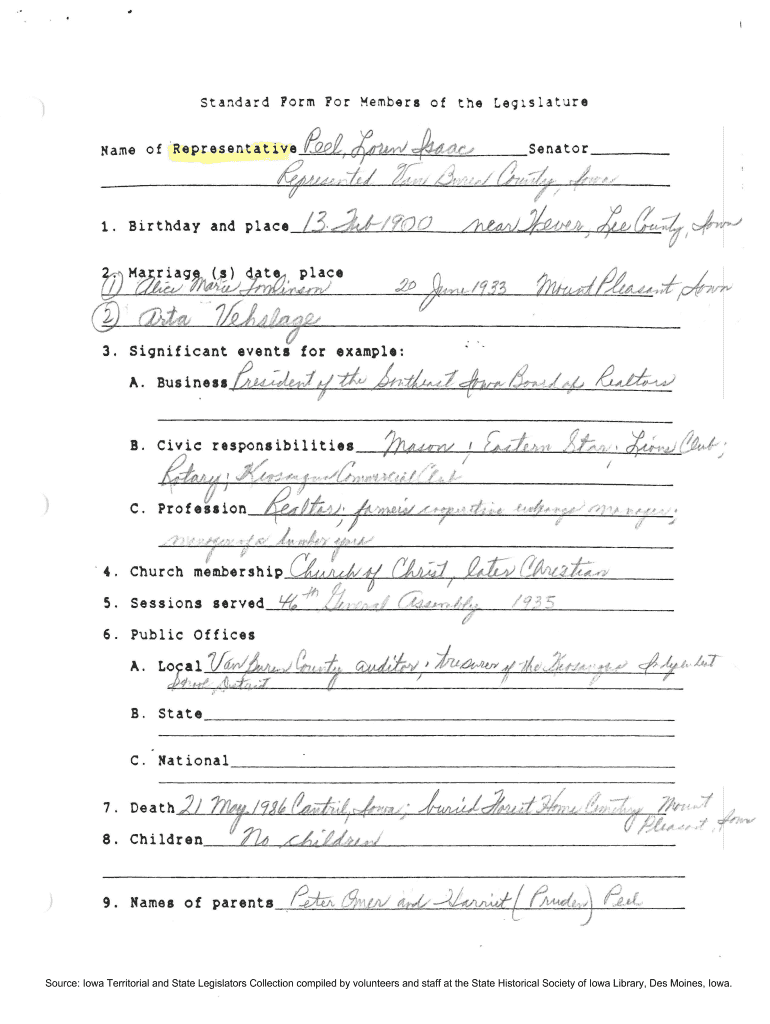 Standard Form For Members of the Legislature
Name of Representative Peel, Loren Isaac Senator
Represented Van Buren County, Iowa
1. Birthday and place 13 Feb 1900 near Hever, Lee County, Iowa
2. Marriage (s) date, place
(1) Alice Marie Tomlinson 20 June 1933 Mount Pleasant, Iowa
(2) Arta Vehslage
3. Significant events for example:
A. Business President of the Southeast Iowa Board of Realtors
B. Civic responsibilities Mason; Eastern Star; Lions Club;
Rotary; Keosauqua Commercial Club
C. Profession Realtor; farmers cooperative exchange manager;
manager of a lumber yard
4. Church membership Church of Christ, later Christian
5. Sessions served 46th General Assembly 1935
6. Public Offices
A. Local Van Buren County auditor; tresurer of the Keosauqua Independent
School District
B. State
C. National
7. Death 21 May 1986 Cantril, Iowa; buried Forest Home Cemetery Mount
Pleasant, Iowa
8. Children No children
9. Names of parents Peter Omer and Harriet (Pruden) Peel
Source: Iowa Territorial and State Legislators Collection compiled by volunteers and staff at the State Historical Society of Iowa Library, Des Moines, Iowa.